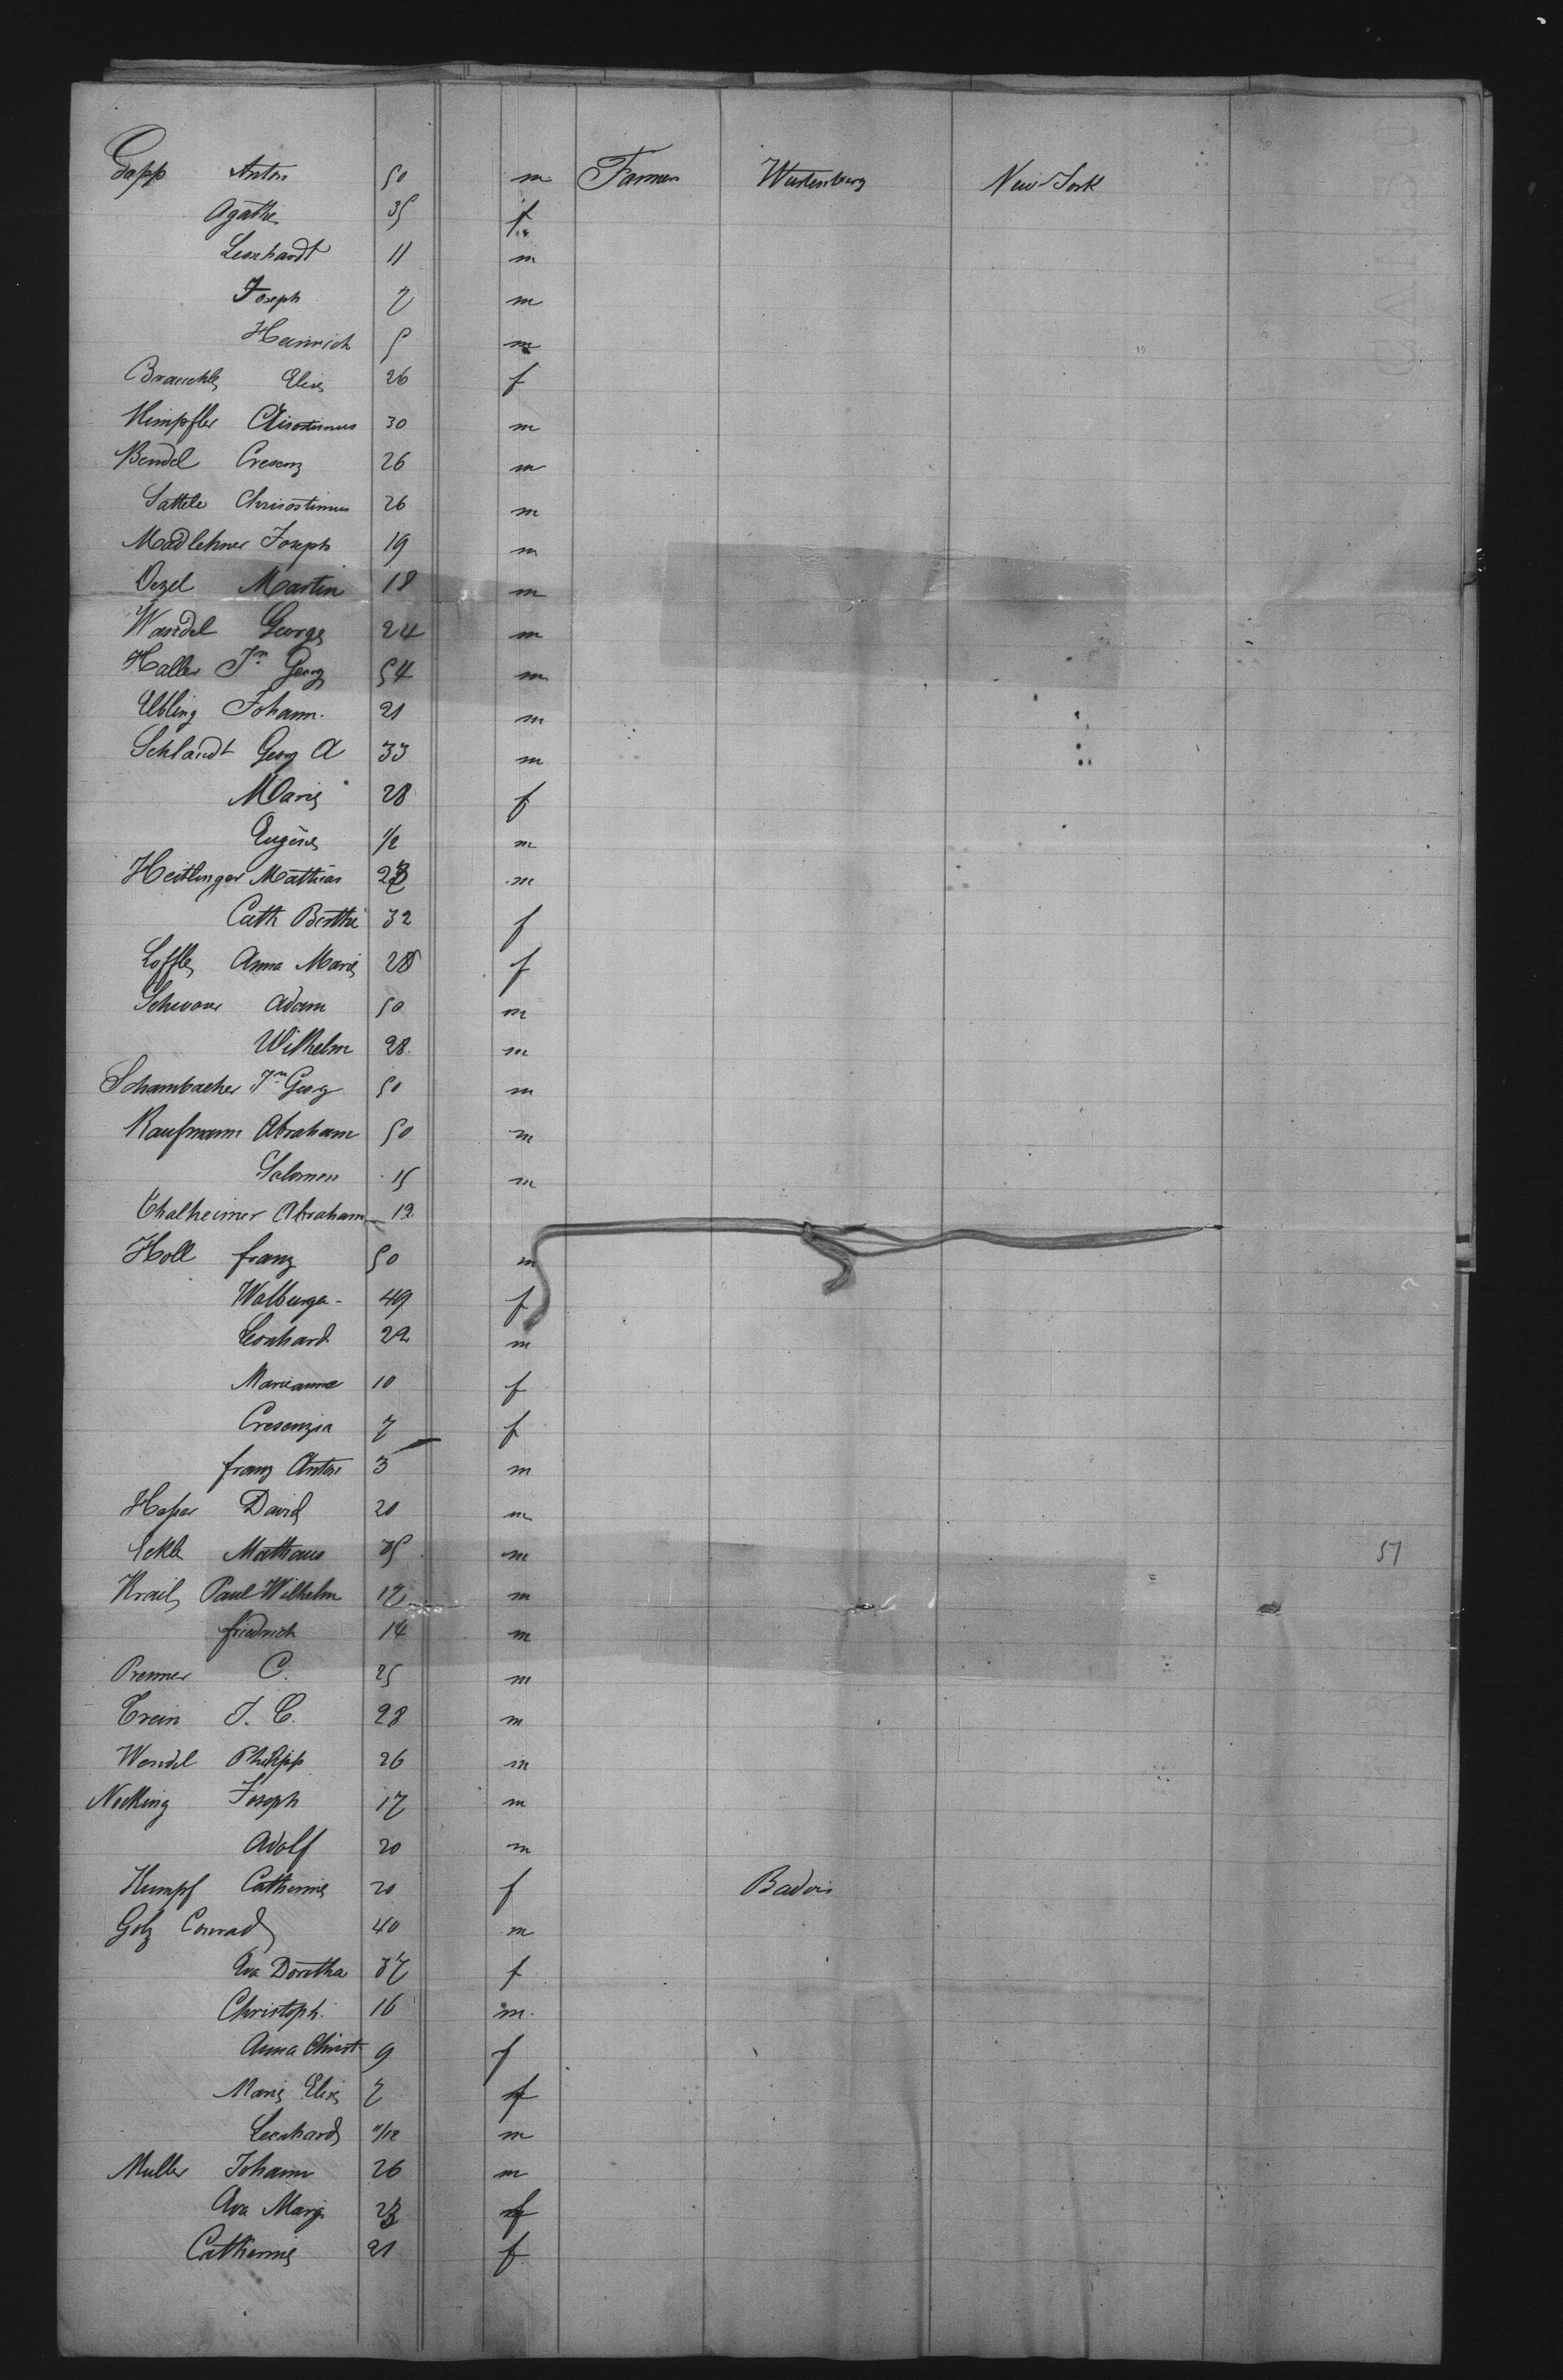 Gapp Anton 50 m Farmer Wurtenberg New York
Agathe 35 f
Leonhardt 11 m
Joseph 7 m
Heinrich 5 m
Brauchle Elise 26 f
Kimpfler 30 m
Bendel Cresenz 26 m
Sattele Chrisostimus 26 m
Madlehner Joseph 19 m
Oezel Martin 18 m
Wandel George 24 m
Haller Jn Georg 54 m
Johann 21 m
Schlandt Georg A 33 m
Marie 28 f
Eugene 1/2 m
Heitlinger Mathias m
Cath Bertha 32 f
Loffle Anna Marie 28 f
Adam 50 m
Wilhelm 28 m
Schambacher Jn Georg 50 m
Kaufmann Abraham 50 m
Salomon 15 m
Thalheimer Abraham 12
Holl franz 50 m
Walburga 49 f
Leonhard 22 m
Marianna 10 f
Cresenzia 7 f
franz Anton 3 m
David 20 m
Eckle Mathaus 35 m 51
Krail Paul Wilhelm 17 m
friedrich 14 m
Premer C. 25 m
Trein J. C. 28 m
Wendel Philipp 26 m
Nocking Joseph 17 m
Adolf 20 m
Kumpf Catherine 20 f Baden
Golz Conrad 40 m
Eva Dorotha 37 f
Christoph 16 m
Anna Christ 9 f
Marie Elise 7 f
Leonhard 11/12 m
Muller Johann 26 m
Eva Marg. 23 f
Catherine 21 f